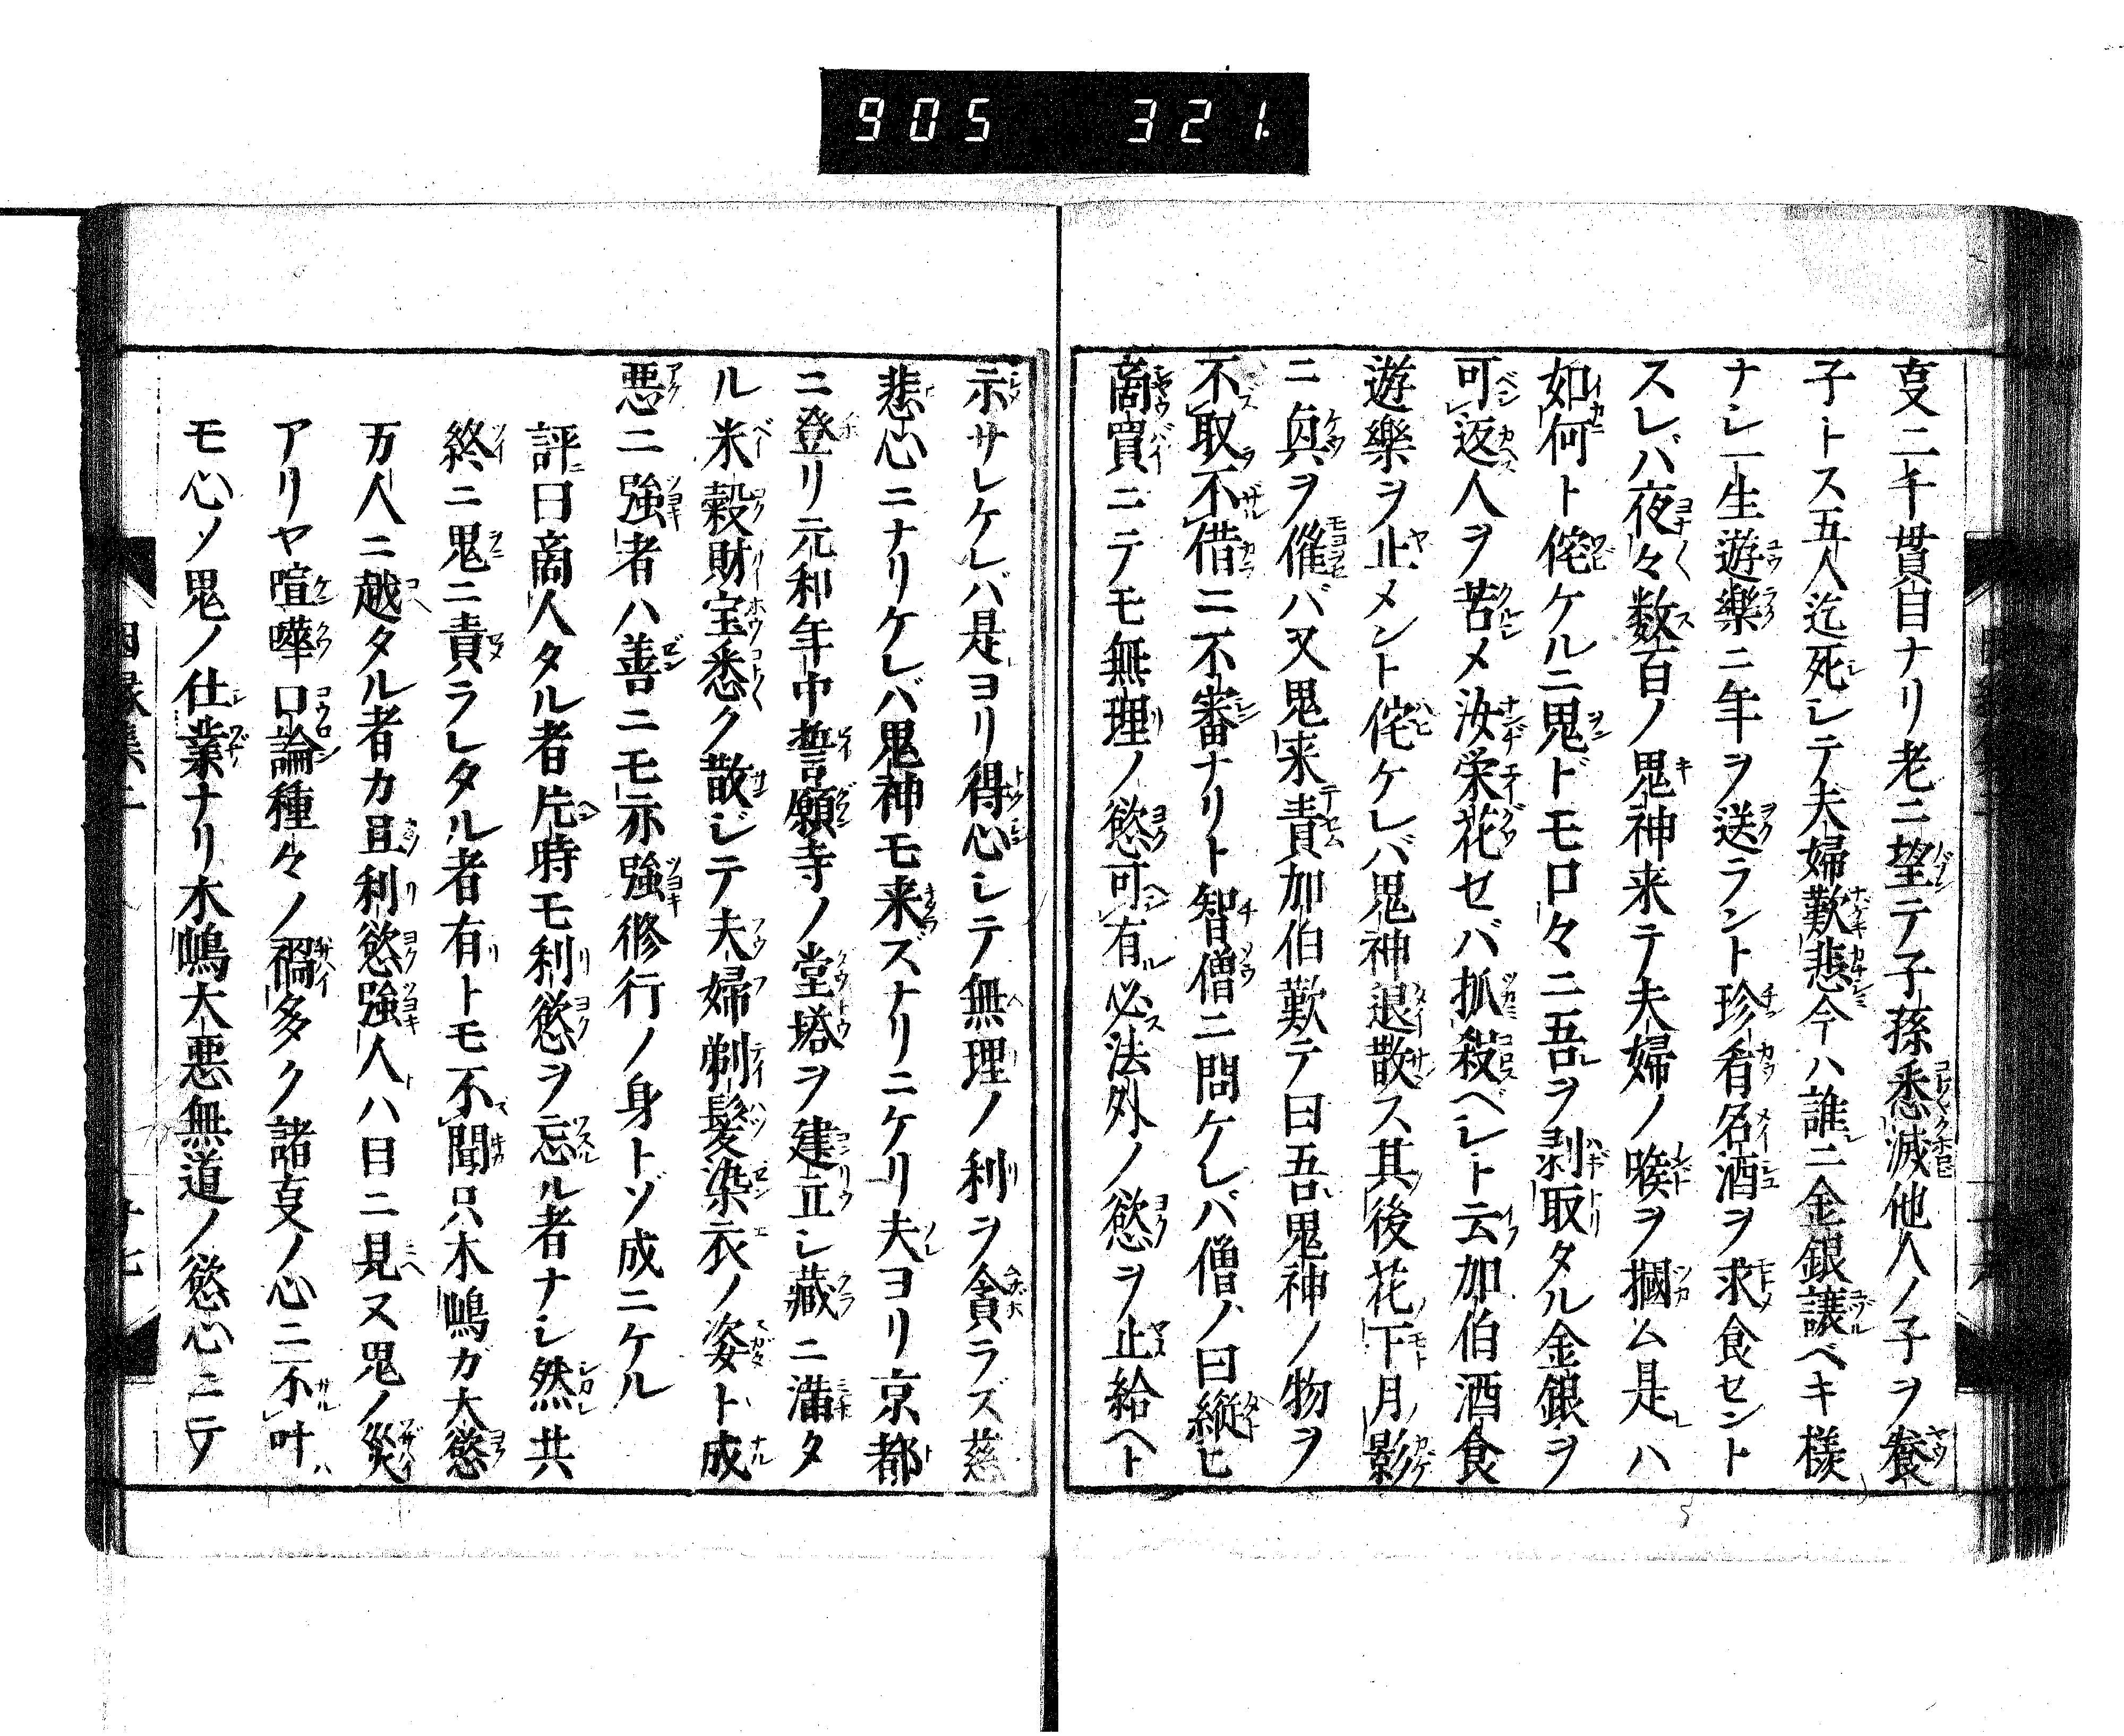 905 321
亊二千貫目ナリ老ニ望テ子孫悉滅他人ノ子ヲ養
子トス五人迄死シテ夫婦歎悲今ハ誰ニ金銀譲ベキ様
ナシ一生遊樂ニ年ヲ送ラント珍肴名酒ヲ求食セント
スレバ夜々数百ノ鬼神来テ夫婦ノ喉ヲ摑ム是ハ
如何ト侘ケルニ鬼ドモ口々ニ吾ヲ剥取タル金銀ヲ
可返人ヲ苦メ汝栄花セバ抓殺ベシト云加伯酒食
遊樂ヲ止メント侘ケレバ鬼神退散ス其後花下月影
ニ真ヲ催バ又鬼来責加伯歎テ曰吾鬼神ノ物ヲ
不取不借ニ不審ナリト智僧ニ問ケレバ僧ノ曰縦ヒ
商買ニテモ無理ノ慾可有必法外ノ慾ヲ止給ヘト
示サレケレバ是ヨリ得心シテ無理ノ利ヲ貪ラズ慈
悲心ニナリケレバ鬼神モ来ズナリニケリ夫ヨリ京都
ニ登リ元和年中誓願寺ノ堂塔ヲ建立シ蔵ニ満タ
ル米穀財宝悉ク散ジテ夫婦剃髪染衣ノ姿ト成
悪ニ強者ハ善ニモ亦強修行ノ身トゾ成ニケル
評曰商人タル者片時モ利慾ヲ忘ル者ナシ然共
終ニ鬼ニ責ラレタル者有トモ不聞只木嶋ガ大慾
万人ニ越タル者カ且利慾強人ハ目ニ見ヌ鬼ノ災
アリヤ喧嘩口論種々ノ禍多ク諸亊ノ心ニ不叶
モ心ソ鬼ノ仕業ナリ木嶋大悪無道ノ慾心ニテ